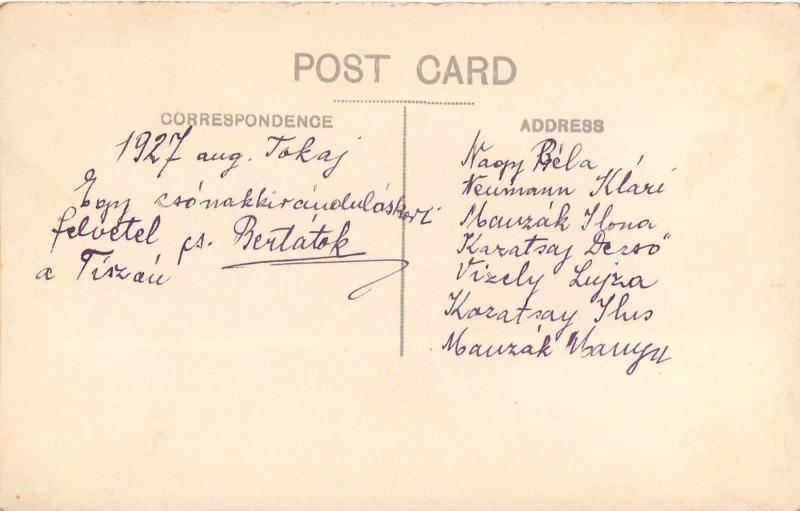 POST CARD
CORRESPONDENCE
1927 aug. Tokaj
Egy csónakkiránduláskori
felvétel ps. Bertátok
a Tiszán
ADDRESS
Nagy Béla
Neumann Klári
Mauzák Ilona
Kazatsay Dezső
Vizely Lujza
Kozatsay Ilus
Mauzák Manyu